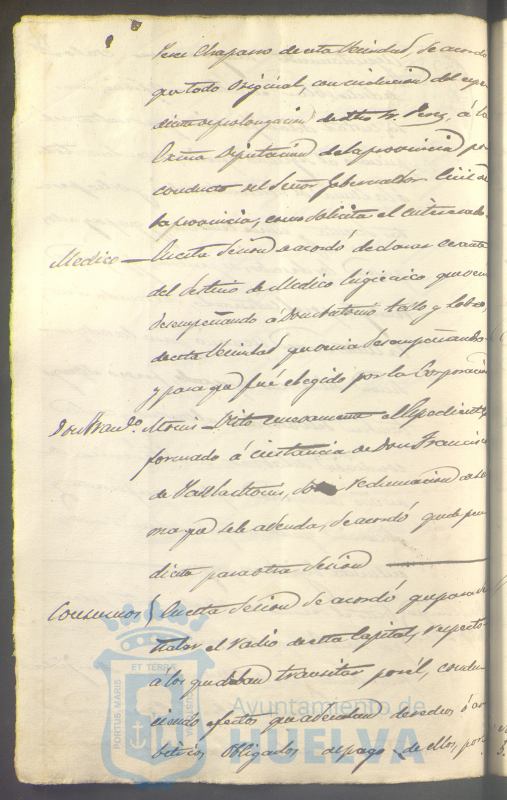 Perez Chaparro de esta Vecindad, Se acordó
que todo Original, con inclusion del expe
diente de prolongacion de dho Sr. Perez, á la
Exma Diputacion de la provincia por
conducto del Señor Gobernador Civil de
la provincia, como solicita el interesado.
Medico — En esta Sesion se acordó declarar cesante
del destino de Medico higienico que venia
desempeñando á Don Antonio y Lobo,
de esta Vecindad que venia desempeñando
y para que fué elegido por la Corporacion
Don Franco. Morus — Visto nuevamente el Expediente
formado á instancia de Don Francisco
de Paula, reclamacion de su
ma que se le adeuda, Se acordó quede pen
diente para otra Sesion
Consumos En esta Sesion Se acordó que para
el radio de esta Capital, respecto
a los que deban transitar por él, condu
ciendo efectos que adeudan derechos ó ar
bitrios, obligados al pago de ellos, por
ET TERRÆ
PORTUS MARIS
CUSTODIA
Ayuntamiento de
HUELVA